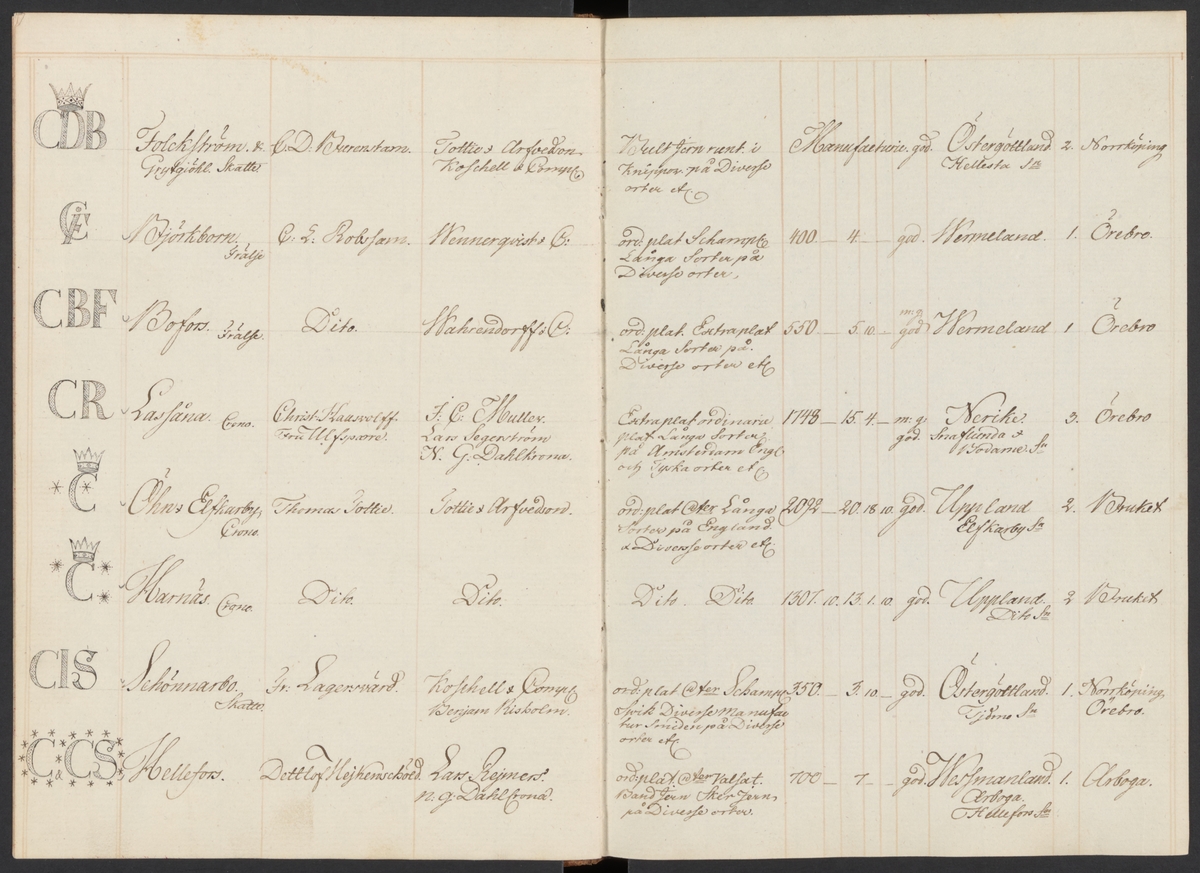 CDB
Folckström. &
Grytgjöhl. Skatte.
C. D: Burenstam.
Tottie & Arfvedson.
Koschell & Comp.
Bult Jern runt i
Knippor på Diverse
orter etc
Manufacturie. god.
Östergöttland.
Hellesta Sn
2. Norrköping
CF
Björkborn.
Frälse
C: L: Robsham.
Wennerqvist & C:
ord: plat Schampl.
Långa Sorter på
Diverse orter,
400 — 4. — god. Wermeland. 1. Örebro.
CBF
Bofors. Frälse.
Dito.
Wahrendorff & C:
ord: plat. Extra plat
Långa Sorter på
Diverse orter etc
550 — 5. 10. — m: g. god Wermeland 1 Örebro
CR
Lassåna. Crono.
Christ. Kaaswolff
Fru Ulfsparre.
J. C: Muller.
Lars Segerström
N. G. Dahlkrona.
Extra plat ordinarie
plat Långa Sorter
på Amsterdam Engl
och Tyska orter etc
1748 — 15. 4. — m: g. god. Nerike. 3. Örebro
Snaflunda &
Bodarne Sn
* C
Öhn & Elfkarby,
Crono.
Thomas Tottie.
Tottie & Arfvedson.
ord: plat @ter Långa
Sorter på England
& Diversse orter etc.
2092 — 20. 18. 10. god. Uppland 2. Bruket
Elfkarby Sn
* C * *
Harnäs. Crono.
Dito.
Dito.
Dito. Dito.
1307. 10. 13. 1. 10. god. Uppland. 2 Bruket
Dito Sn
CIS
Schönnarbo.
Skatte.
Fr: Lagersvärd.
Koschell & Comp
Benjam Risholm.
ord: plat @ter Schampl
Svik Diverse Manufac
tur Smiden på Diverse
orter etc
350. — 3. 10. — god. Östergöttland. 1. Norrköping,
Tjdmo Sn Örebro.
C & CS
Hellefors.
Dettlof Hejkenschöld.
Lars Rejmers.
N. G: DahlCrona.
ord: plat @ter Valsat.
Band Jern Sker Jern,
på Diverse orter.
700 — 7 — god. Wessmanland. 1. Arboga.
Arboga.
Hellefors Sn